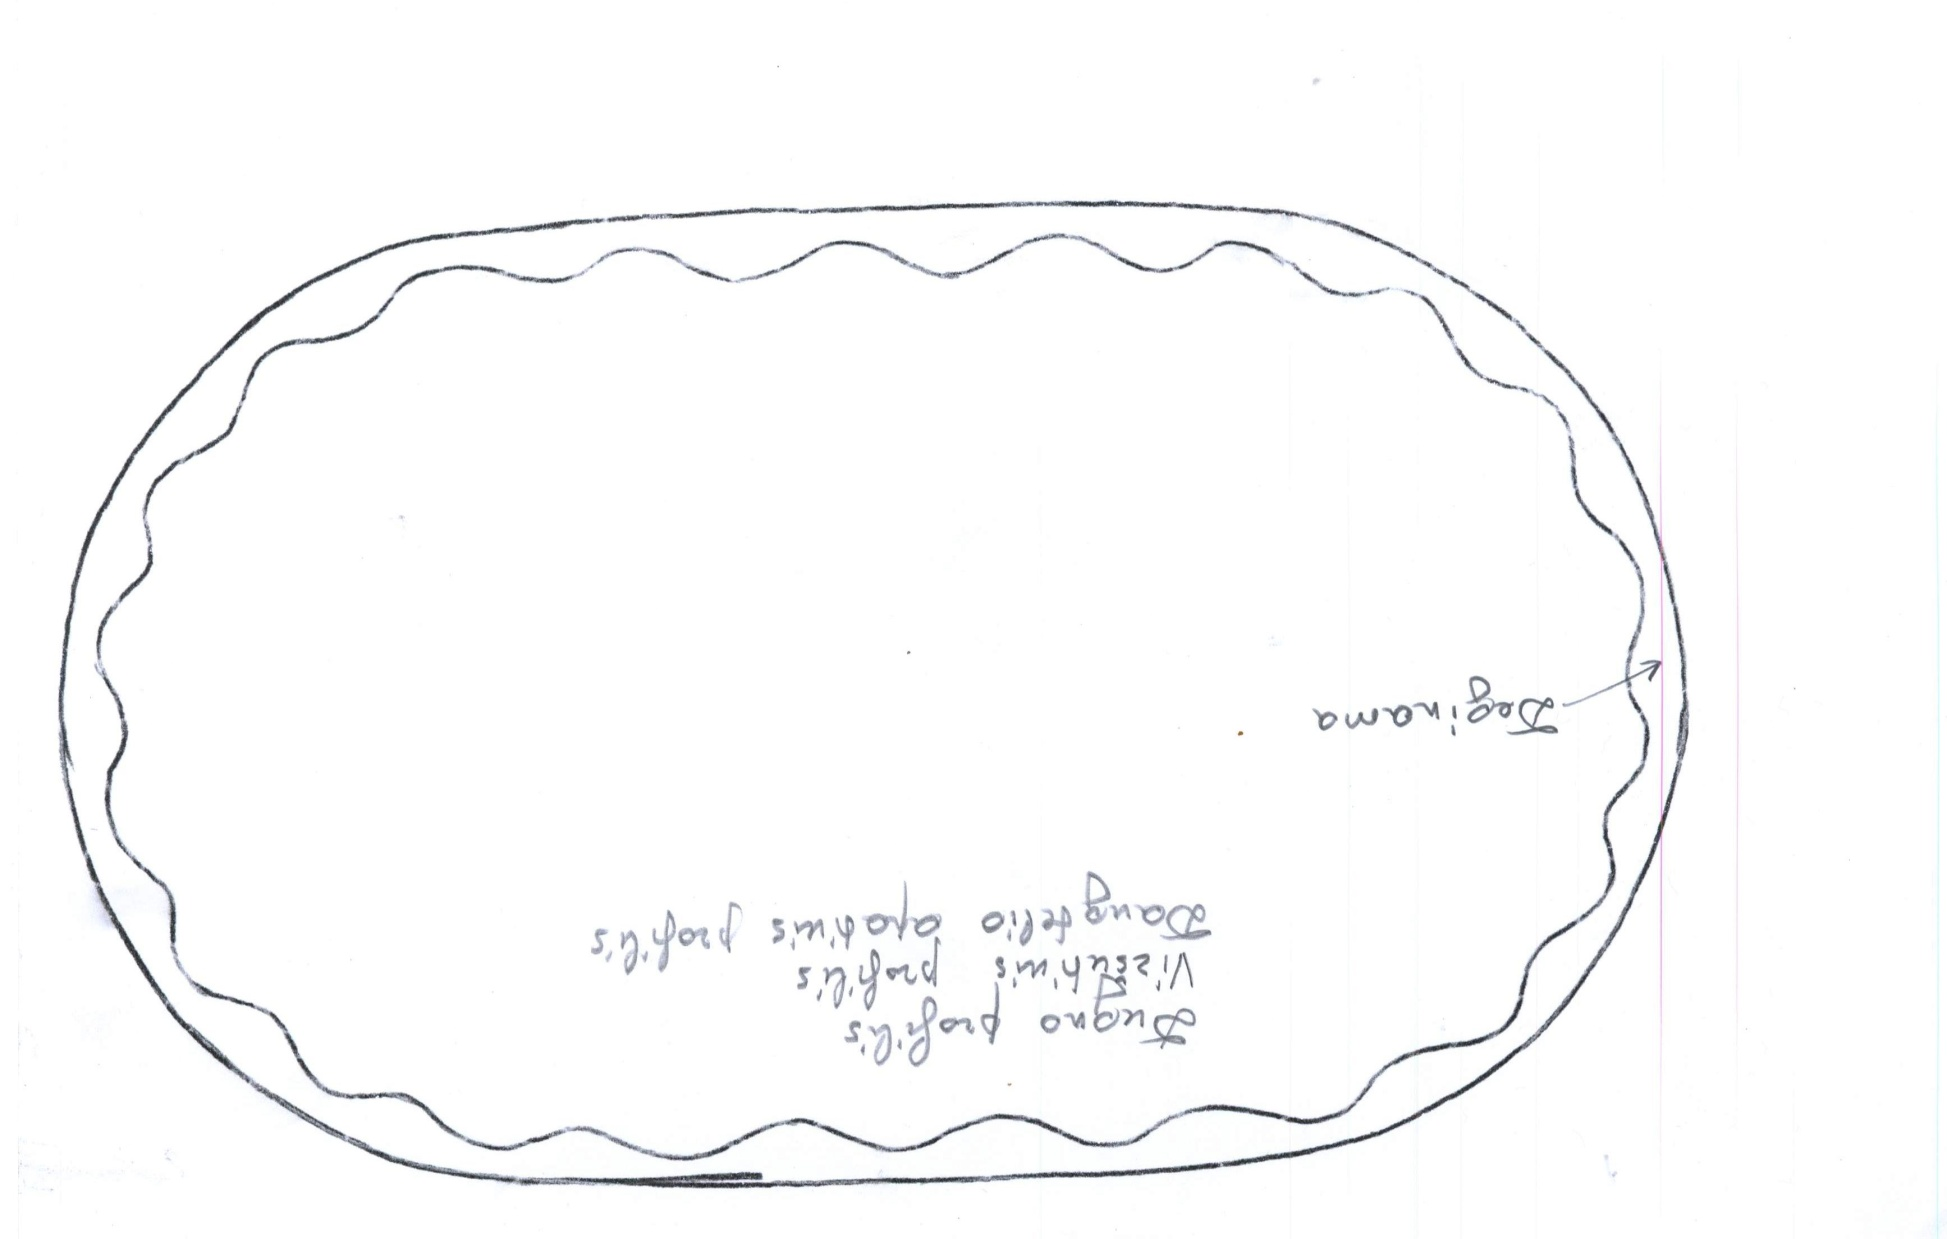 Dugno profilis
Viršutinis profilis
Dangtelio apatinis profilis
Deginama